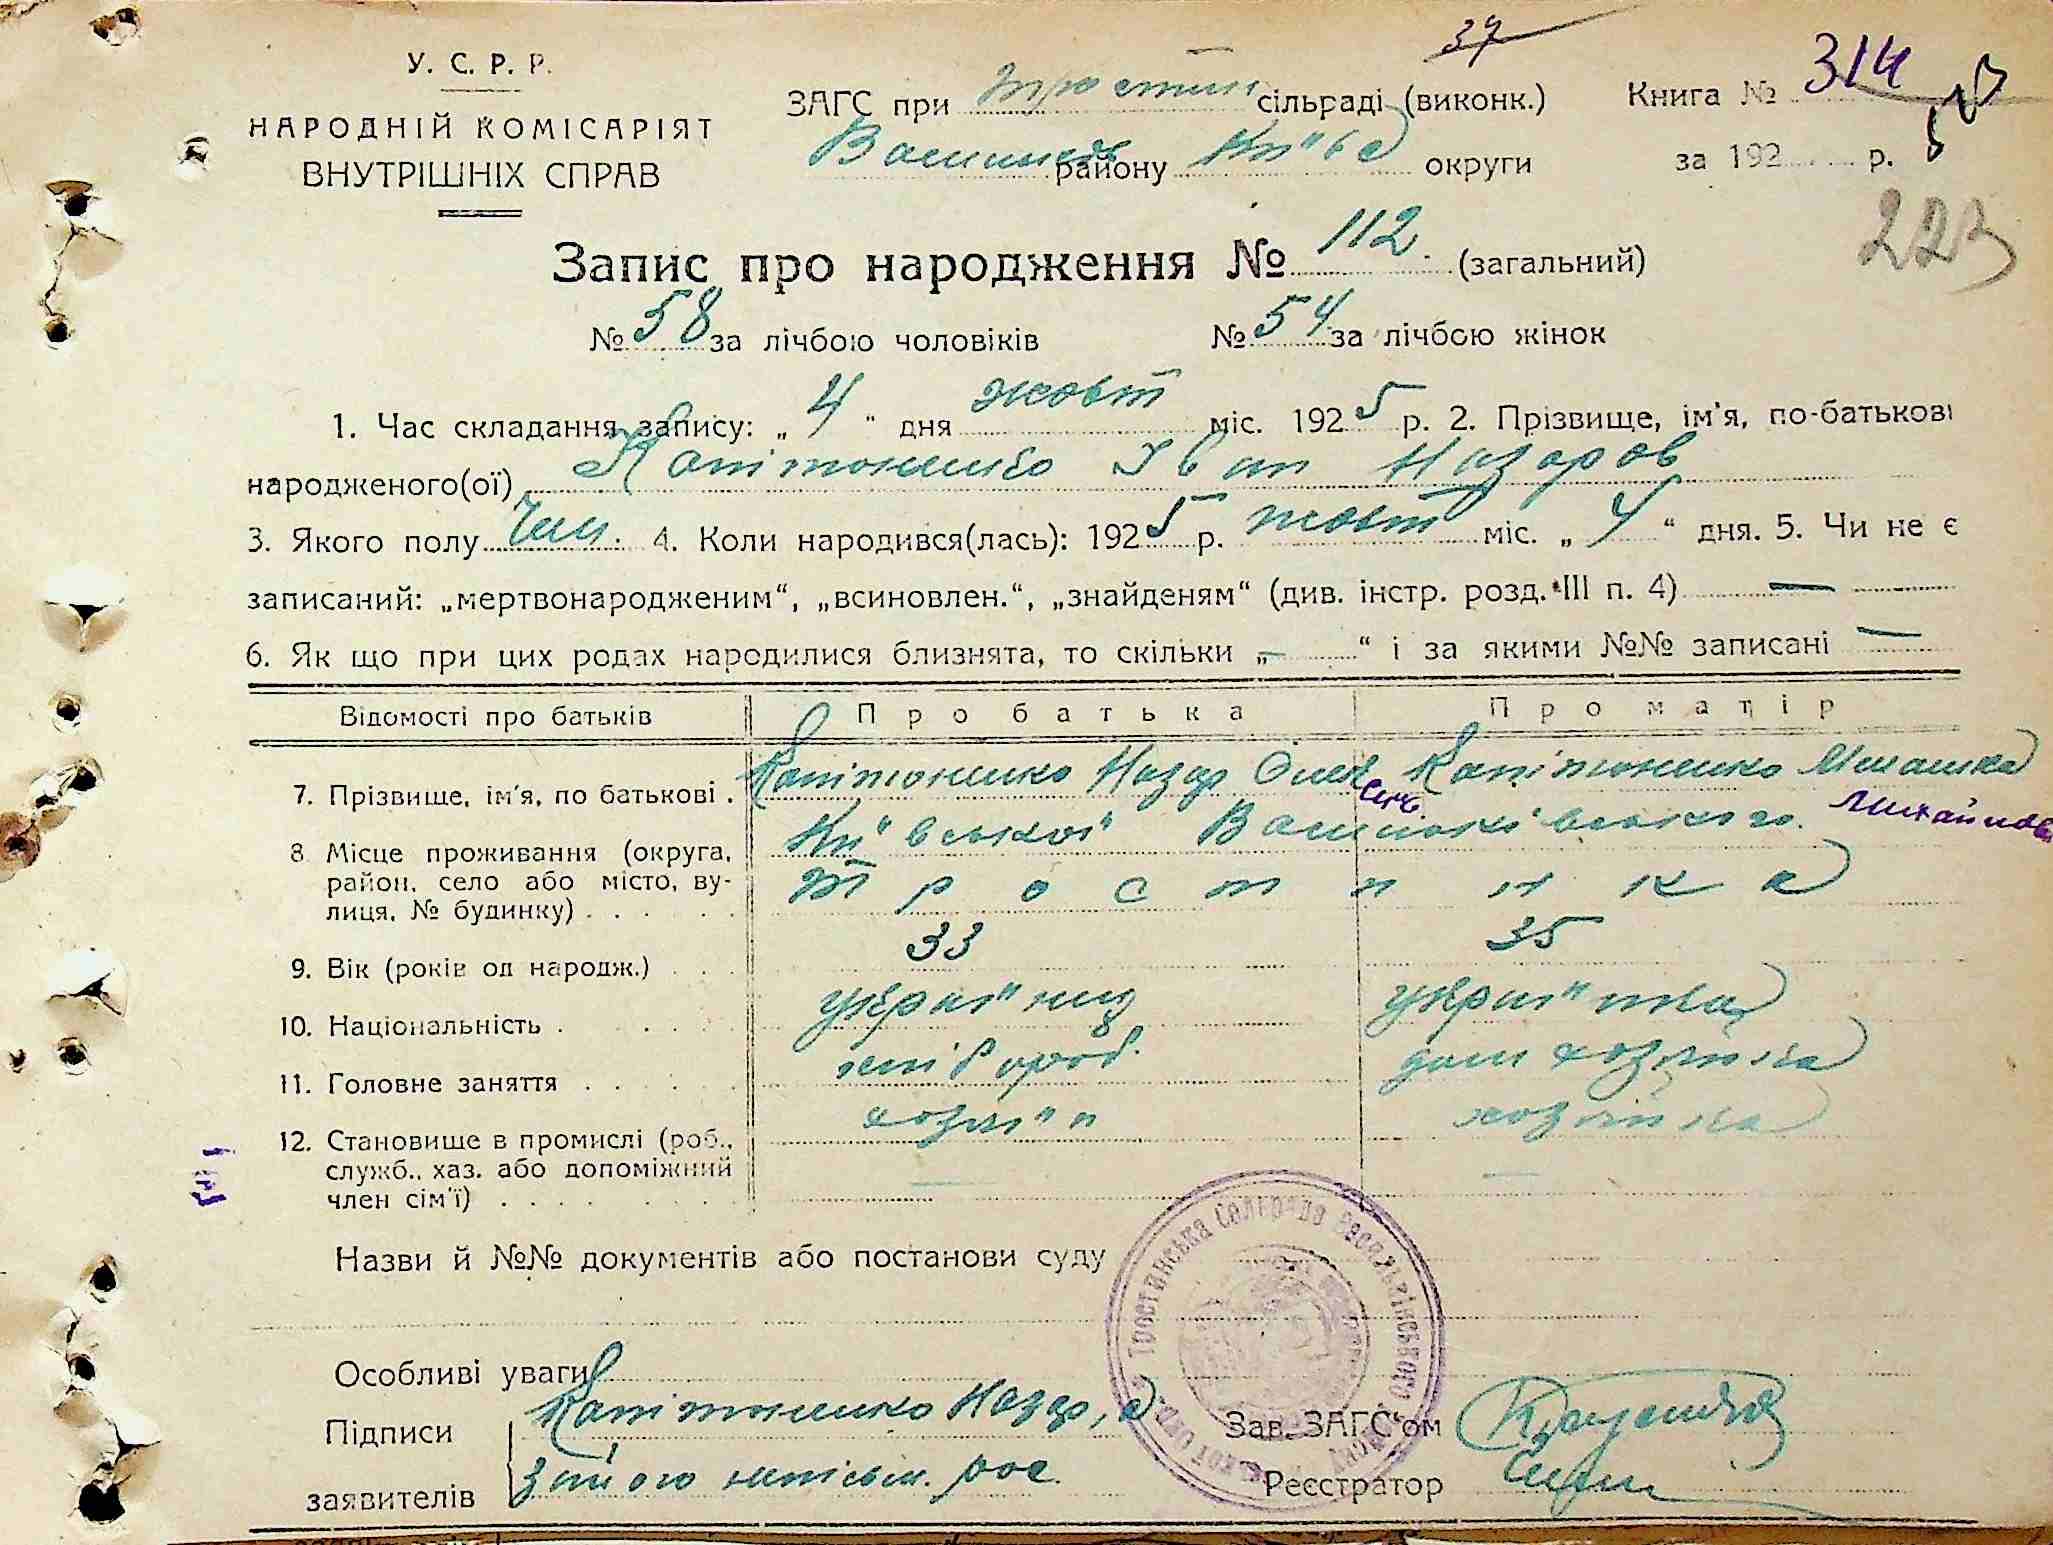 37
У. С. Р. Р.
НАРОДНІЙ КОМІСАРІЯТ
ВНУТРІШНІХ СПРАВ
ЗАГС при Тростин сільраді (виконк.) Книга № 314
району Київс округи за 192 р.
223
Запис про народження № 112 (загальний)
№ 58 за лічбою чоловіків № 54 за лічбою жінок
1. Час складання запису: „ 4 “ дня жовт міс. 1925 р. 2. Прізвище, ім'я, по-батькові
народженого(ої) Капітоненко Іван Назаров
3. Якого полу Чол. 4. Коли народився(лась): 1925 р. жовт міс. „ 4 “ дня. 5. Чи не є
записаний: „мертвонародженим“, „всиновлен.“, „знайденям“ (див. інстр. розд. III п. 4) —
6. Як що при цих родах народилися близнята, то скільки „ — “ і за якими №№ записані —
Відомості про батьків Про батька Про матір
7. Прізвище, ім'я, по батькові . Капітоненко Назар Капітоненко
Михайлов
8. Місце проживання (округа, Київської
район, село або місто, ву- Тростинка
лиця, № будинку) . . . . .
9. Вік (років од народж.) . . . 33 35
10. Національність . . . . . україниц україінка
11. Головне заняття . . . . . хлібороб. дом хозяйка
12. Становище в промислі (роб., хозяїн хозяйка
служб., хаз. або допоміжний
член сім'ї) . . . . . . . . — —
Назви й №№ документів або постанови суду
Тростинська Сельрада Васильківського
Особливі уваги
Підписи Капітоненко Назар, а
заявителів за його непісьм. рос.
Зав. ЗАГС'ом
Реєстратор